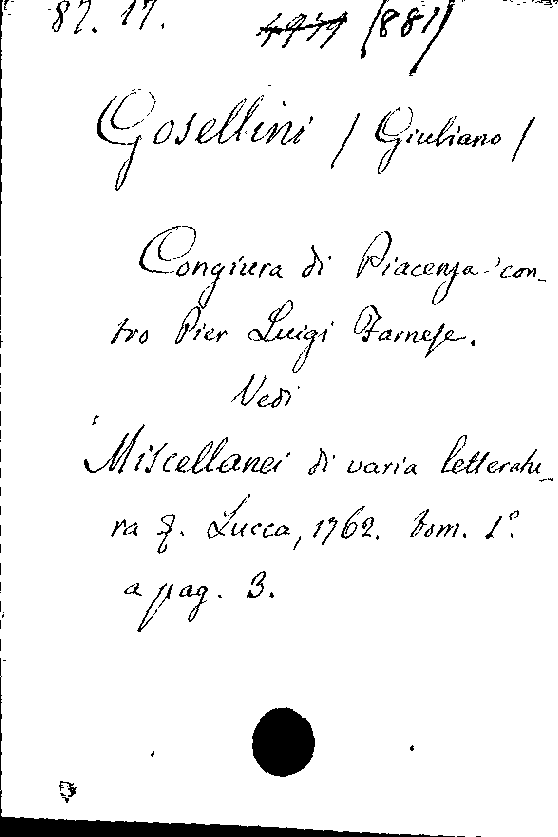 87. 17. (881)
Gosellini / Giuliano /
Congiura di Piacenza con-
tro Pier Luigi Farnese.
Vedi
Miscellanei di varia letteratu-
ra &. Lucca, 1762. tom. 1°.
a pag. 3.